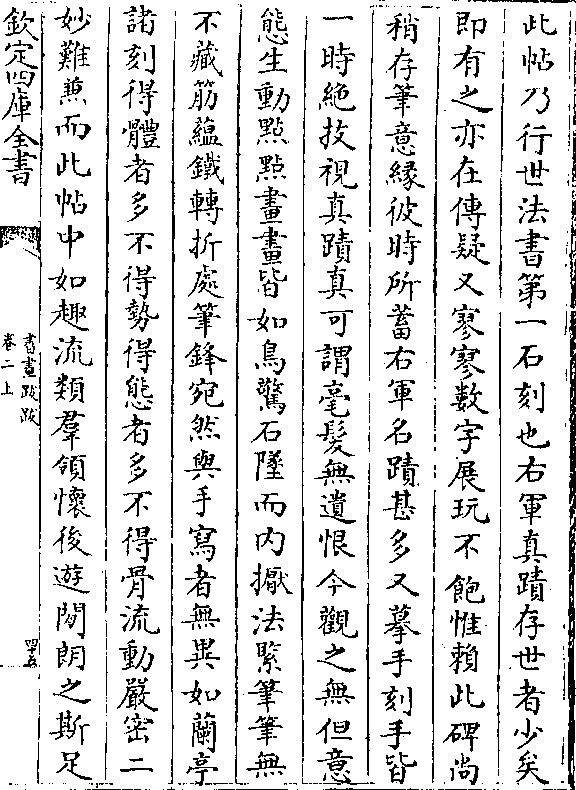 此帖乃行世法書第一石刻也右軍真蹟存世者少矣
即有之亦在傳疑又寥寥數字展玩不飽惟賴此碑尚
稍存筆意緣彼時所蓄右軍名蹟甚多又摹手刻手皆
一時絶技視真蹟真可謂毫髮無遺恨今觀之無但意
態生動點點畫畫皆如鳥驚石墜而内擫法緊筆筆無
不藏筋蘊鐵轉折處筆鋒宛然與手寫者無異如蘭亭
諸刻得體者多不得勢得態者多不得骨流動嚴密二
妙難兼而此帖中如趣流類羣領懷後遊閒朗之斯足
欽定四庫全書
書畫跋跋
卷二上
四十五